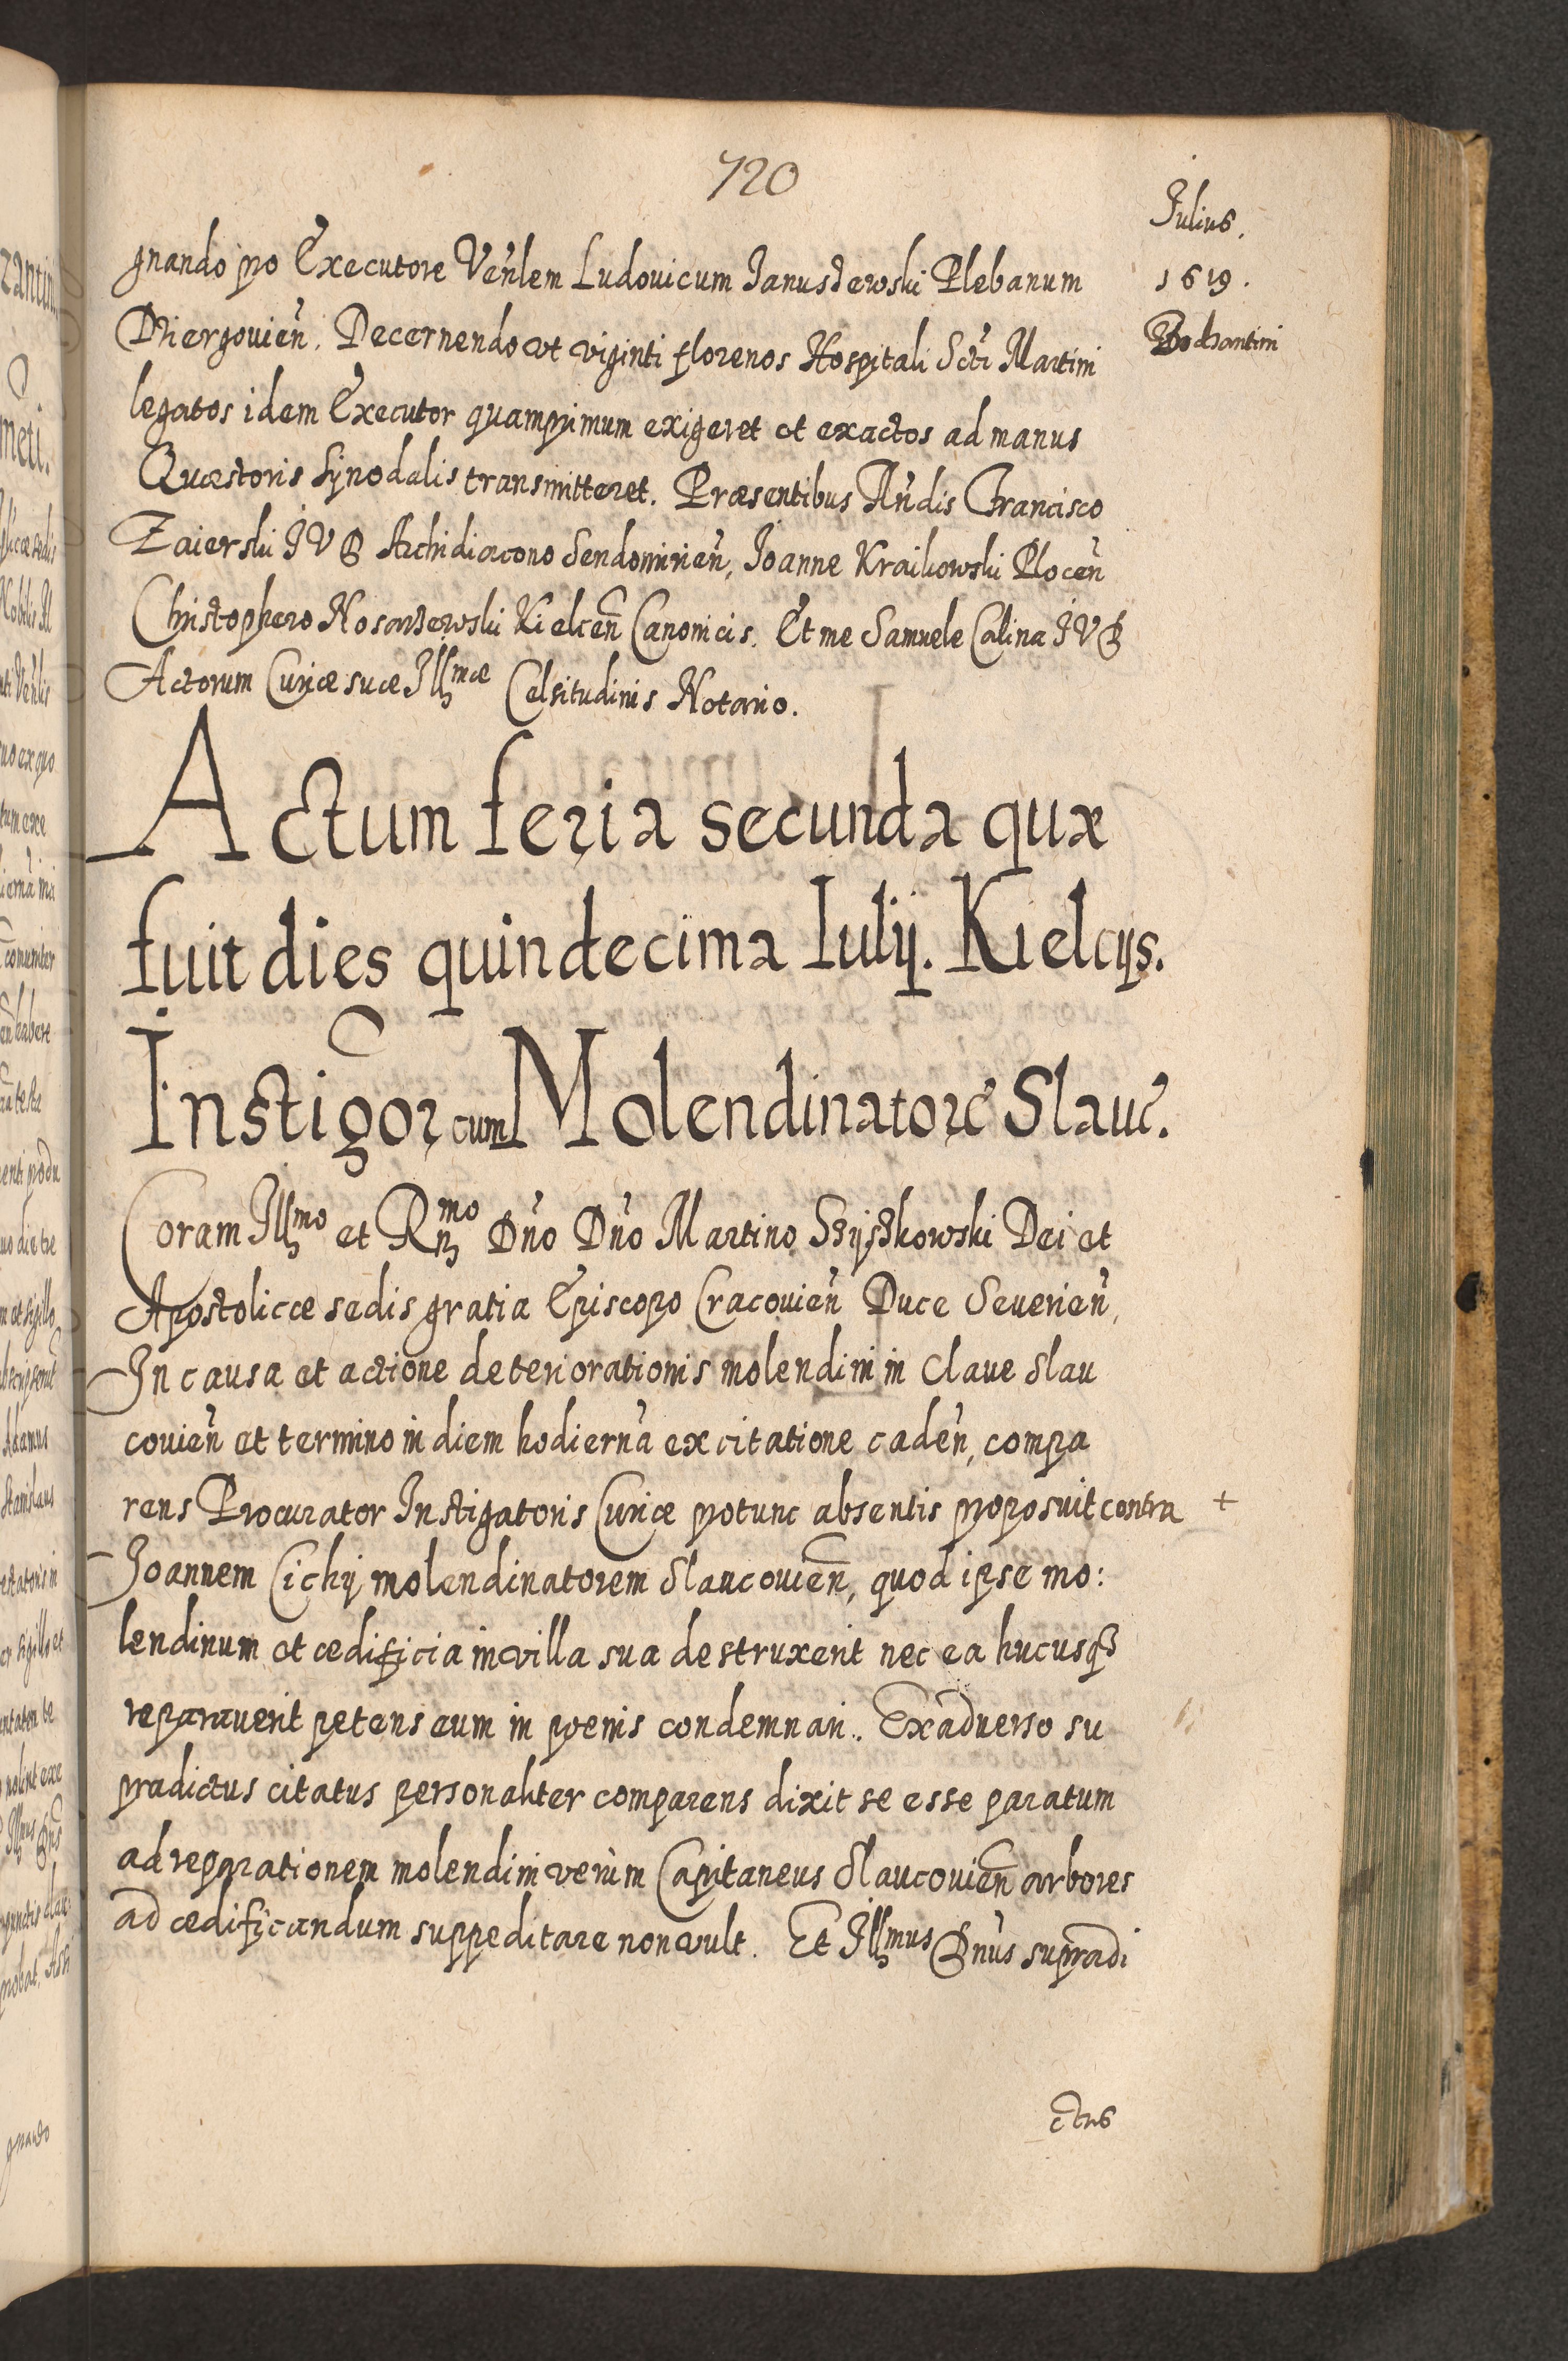 720
Julius.
1619.
Bodzantini
gnando pro Executore Venlem Ludovicum Janusdewski Plebanum
Dziergovien. Decernendo ut viginti florenos Hospitali Scti Martini
legatos idem Executor quamprimum exigeret et exactos ad manus
Quæstoris Synodalis transmitteret. Præsentibus Rndis Francisco
Zaierski JVD Archidiacono Sendomirien, Joanne Kraikowski Plocen
Christophero Nosarzewski Kielcen Canonicis. Et me Samuele Calina JVD
Actorum Curiæ suæ Illmæ Celsitudinis Notario.
Actum feria secunda quæ
fuit dies quindecima Iulij. Kielcijs.
Instigor cum Molendinatore Slauc.
Coram Illmo et Rmo Dno Dno Martino Szyszkowski Dei et
Apostolicæ sedis gratia Episcopo Cracovien Duce Severien,
In causa et actione deteriorationis molendini in Clave Slau
covien et termino in diem hodierna ex citatione caden, compa
rens Procurator Instigatoris Curiæ protunc absentis proposuit contra +
Joannem Cichy molendinatorem Slaucovien, quod ipse mo:
lendinum et ædificia in villa sua destruxerit nec ea hucusq
reparaverit petens eum in poenis condemnari. Ex adverso su
pradictus citatus personaliter comparens dixit se esse paratum
ad reparationem molendini verùm Capitaneus Slaucovien arbores
ad ædificandum suppeditare non vult. Et Illmus Dnus supradi
ctus